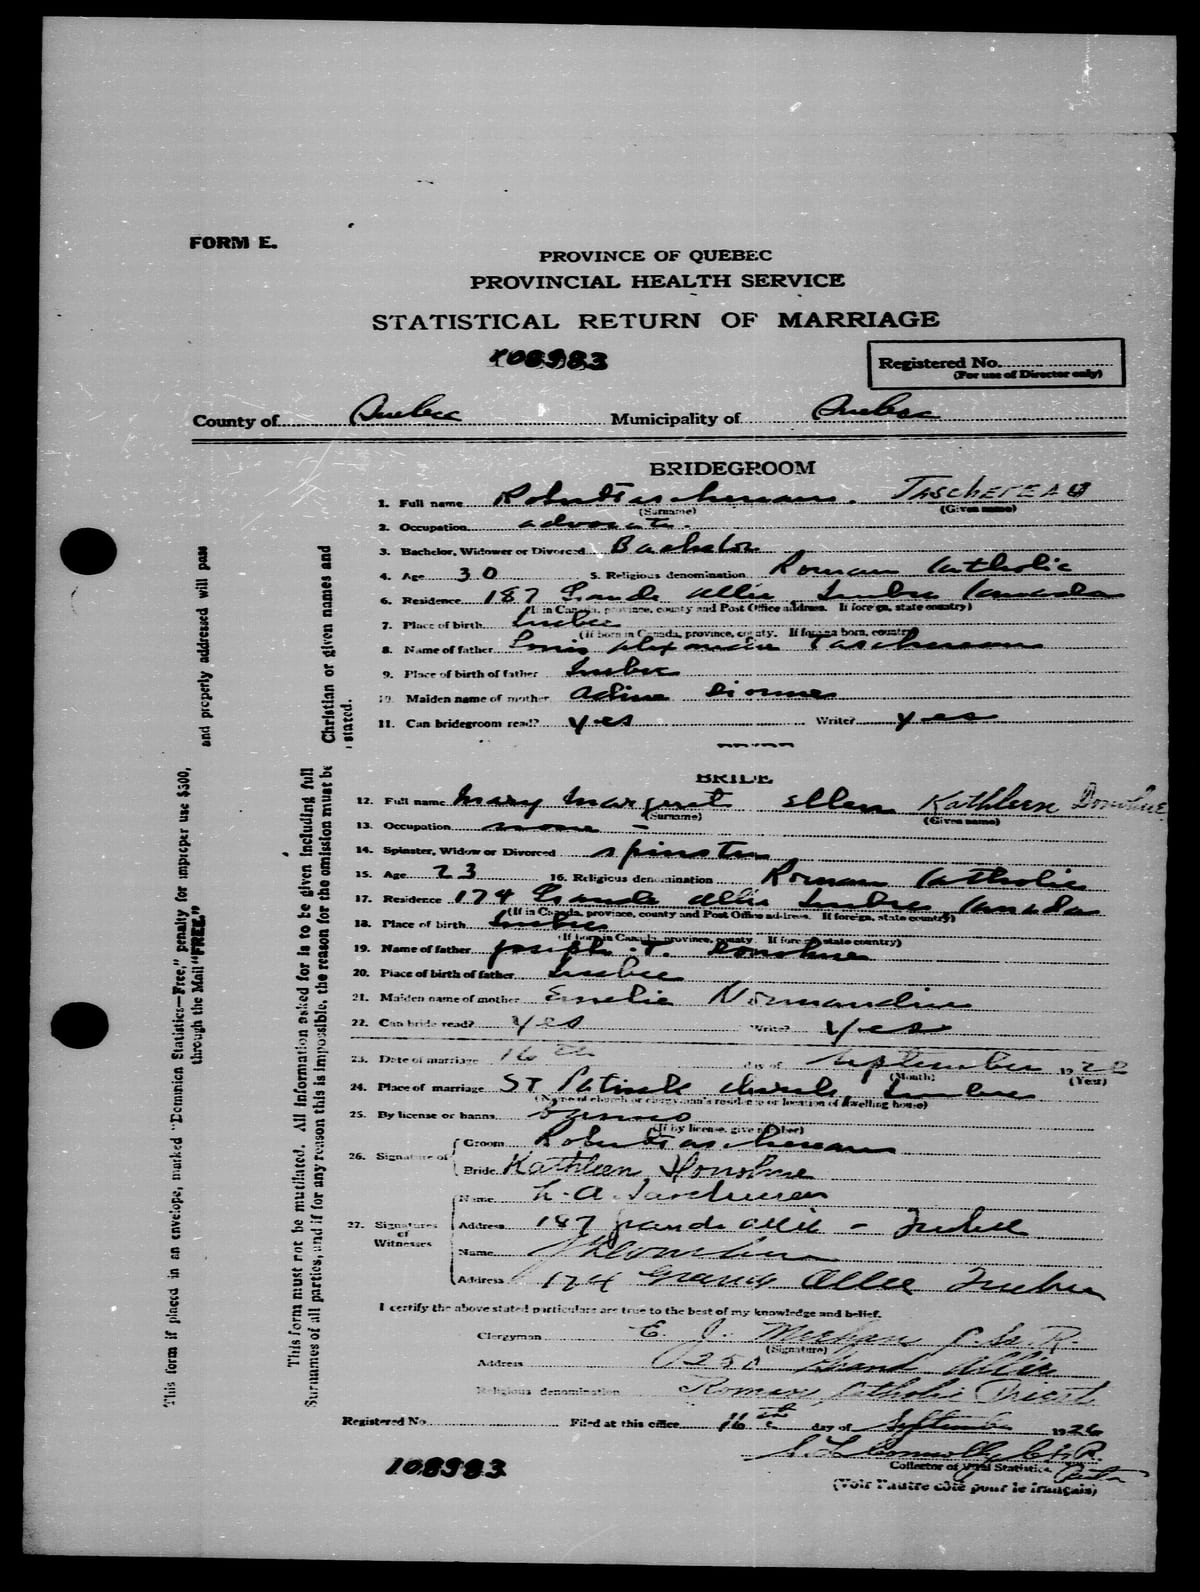 FORM E.
PROVINCE OF QUEBEC
PROVINCIAL HEALTH SERVICE
STATISTICAL RETURN OF MARRIAGE
108983
Registered No.
(For use of Director only)
County of Quebec Municipality of Quebec
BRIDEGROOM
1. Full name Robert Taschereau. TASCHEREAU
(Surname) (Given name)
2. Occupation advocate.
3. Bachelor, Widower or Divorced Bachelor
4. Age 30 5. Religious denomination Roman Catholic
6. Residence 187 Grande Allée Quebec Canada
(If in Canada, province, county and Post Office address. If foreign, state country)
7. Place of birth Quebec
(If born in Canada, province, county. If foreign born, country)
8. Name of father Louis Alexandre Taschereau
9. Place of birth of father Quebec
10. Maiden name of mother Adine Dionne
11. Can bridegroom read? yes Write? yes
BRIDE
12. Full name Mary Margaret Ellen Kathleen Donohue
(Surname) (Given name)
13. Occupation none -
14. Spinster, Widow or Divorced spinster
15. Age 23 16. Religious denomination Roman Catholic
17. Residence 174 Grande Allée Quebec Canada
(If in Canada, province, county and Post Office address. If foreign, state country)
18. Place of birth Quebec
(If born in Canada, province, county. If foreign, state country)
19. Name of father Joseph .T. Donohue
20. Place of birth of father Quebec
21. Maiden name of mother Emelie Normandin
22. Can bride read? yes Write? yes
23. Date of marriage 16th day of September 19
(Month) (Year)
24. Place of marriage St Patrick church Quebec
(Name of church or clergyman's residence or location of dwelling house)
25. By license or banns
(If by license, give number)
26. Signature of { Groom Robert Taschereau
Bride Kathleen Donohue
27. Signatures of Witnesses
Name L. A. Taschereau
Address 187 Grande Allée - Quebec
Name
Address 174 Grande Allée Quebec
I certify the above stated particulars are true to the best of my knowledge and belief.
Clergyman E. J. C.Ss.R.
(Signature)
Address 250 Grand Allée
Religious denomination Roman Catholic Priest
Registered No. Filed at this office 16th day of September 1926
Connolly C.Ss.R.
Collector of Vital Statistics
108983
(Voir l'autre côté pour le français)
This form if placed in an envelope, marked "Dominion Statistics—Free," penalty for improper use $300, and properly addressed will pass
through the Mail "FREE."
This form must not be mutilated. All information asked for is to be given including full Christian or given names and
Surnames of all parties, and if for any reason this is impossible, the reason for the omission must be stated.